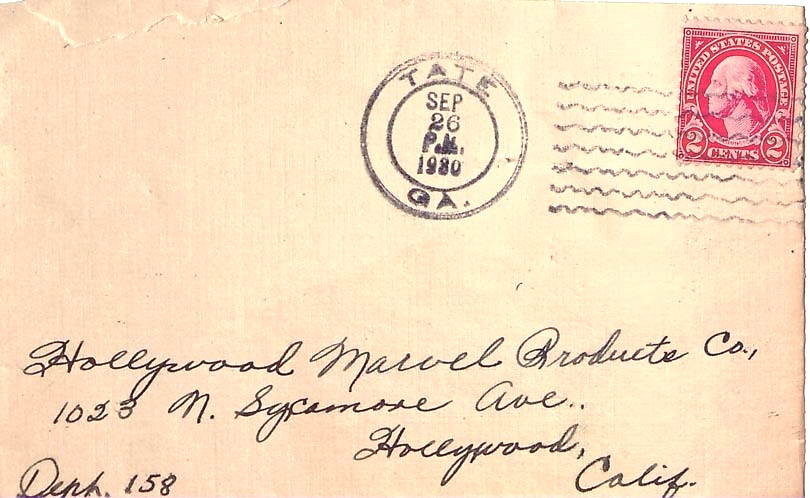 TATE
SEP
26
P.M.
1930
GA.
UNITED STATES POSTAGE
2 CENTS 2
Hollywood Marvel Products Co.,
1023 N. Sycamore Ave..
Hollywood,
Calif.
Deph. 158